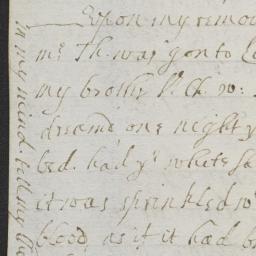 Upon my remov
mr Th. was gon to Lo
my brother
dreamd one night yt
bed. had ye white
it was sprinkled wt
blood, as if it had b
in my mind. till my